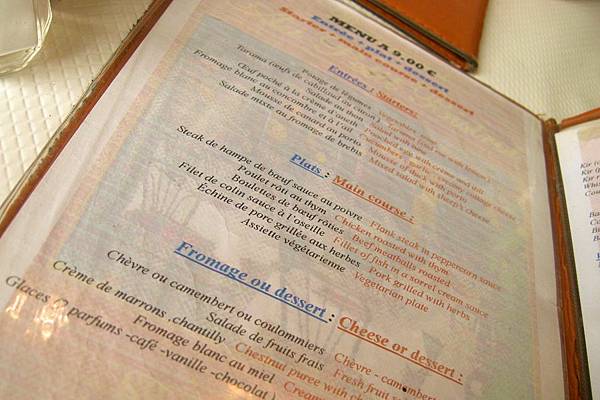 MENU A 9.00 €
Entrée + plat + dessert
Starter + main course + dessert
Entrées : Starters:
Potage de légumes Vegetables
Tarama (œufs de cabillaud au citron) Tarama
Salade au thon Salad with
Œuf poché à la crème d'aneth Poached egg with creme and dill
Fromage blanc au concombre et à l'ail Cucumbers, garlic, creamy cottage cheese
Mousse de canard au porto Mousse of duck with porto
Salade mixte au fromage de brebis Mixed salad with sheep's cheese
Plats : Main course :
Steak de hampe de bœuf sauce au poivre Flank steak in peppercorn sauce
Poulet rôti au thym Chicken roasted with thym
Boulettes de bœuf rôties Beef meatballs roasted
Filet de colin sauce à l'oseille Fillet of fish in a sorrel cream sauce
Échine de porc grillée aux herbes Pork grilled with herbs
Assiette végétarienne Vegetarian plate
Fromage ou dessert : Cheese or dessert :
Chèvre ou camembert ou coulommiers Chèvre - camembert
Salade de fruits frais Fresh fruit
Crème de marrons ,chantilly Chestnut puree with
Fromage blanc au miel Cream
Glaces parfums -café -vanille -chocolat )
Kir
Kir
Kir
Whi
Cou
Ba
Ba
Bo
Cô